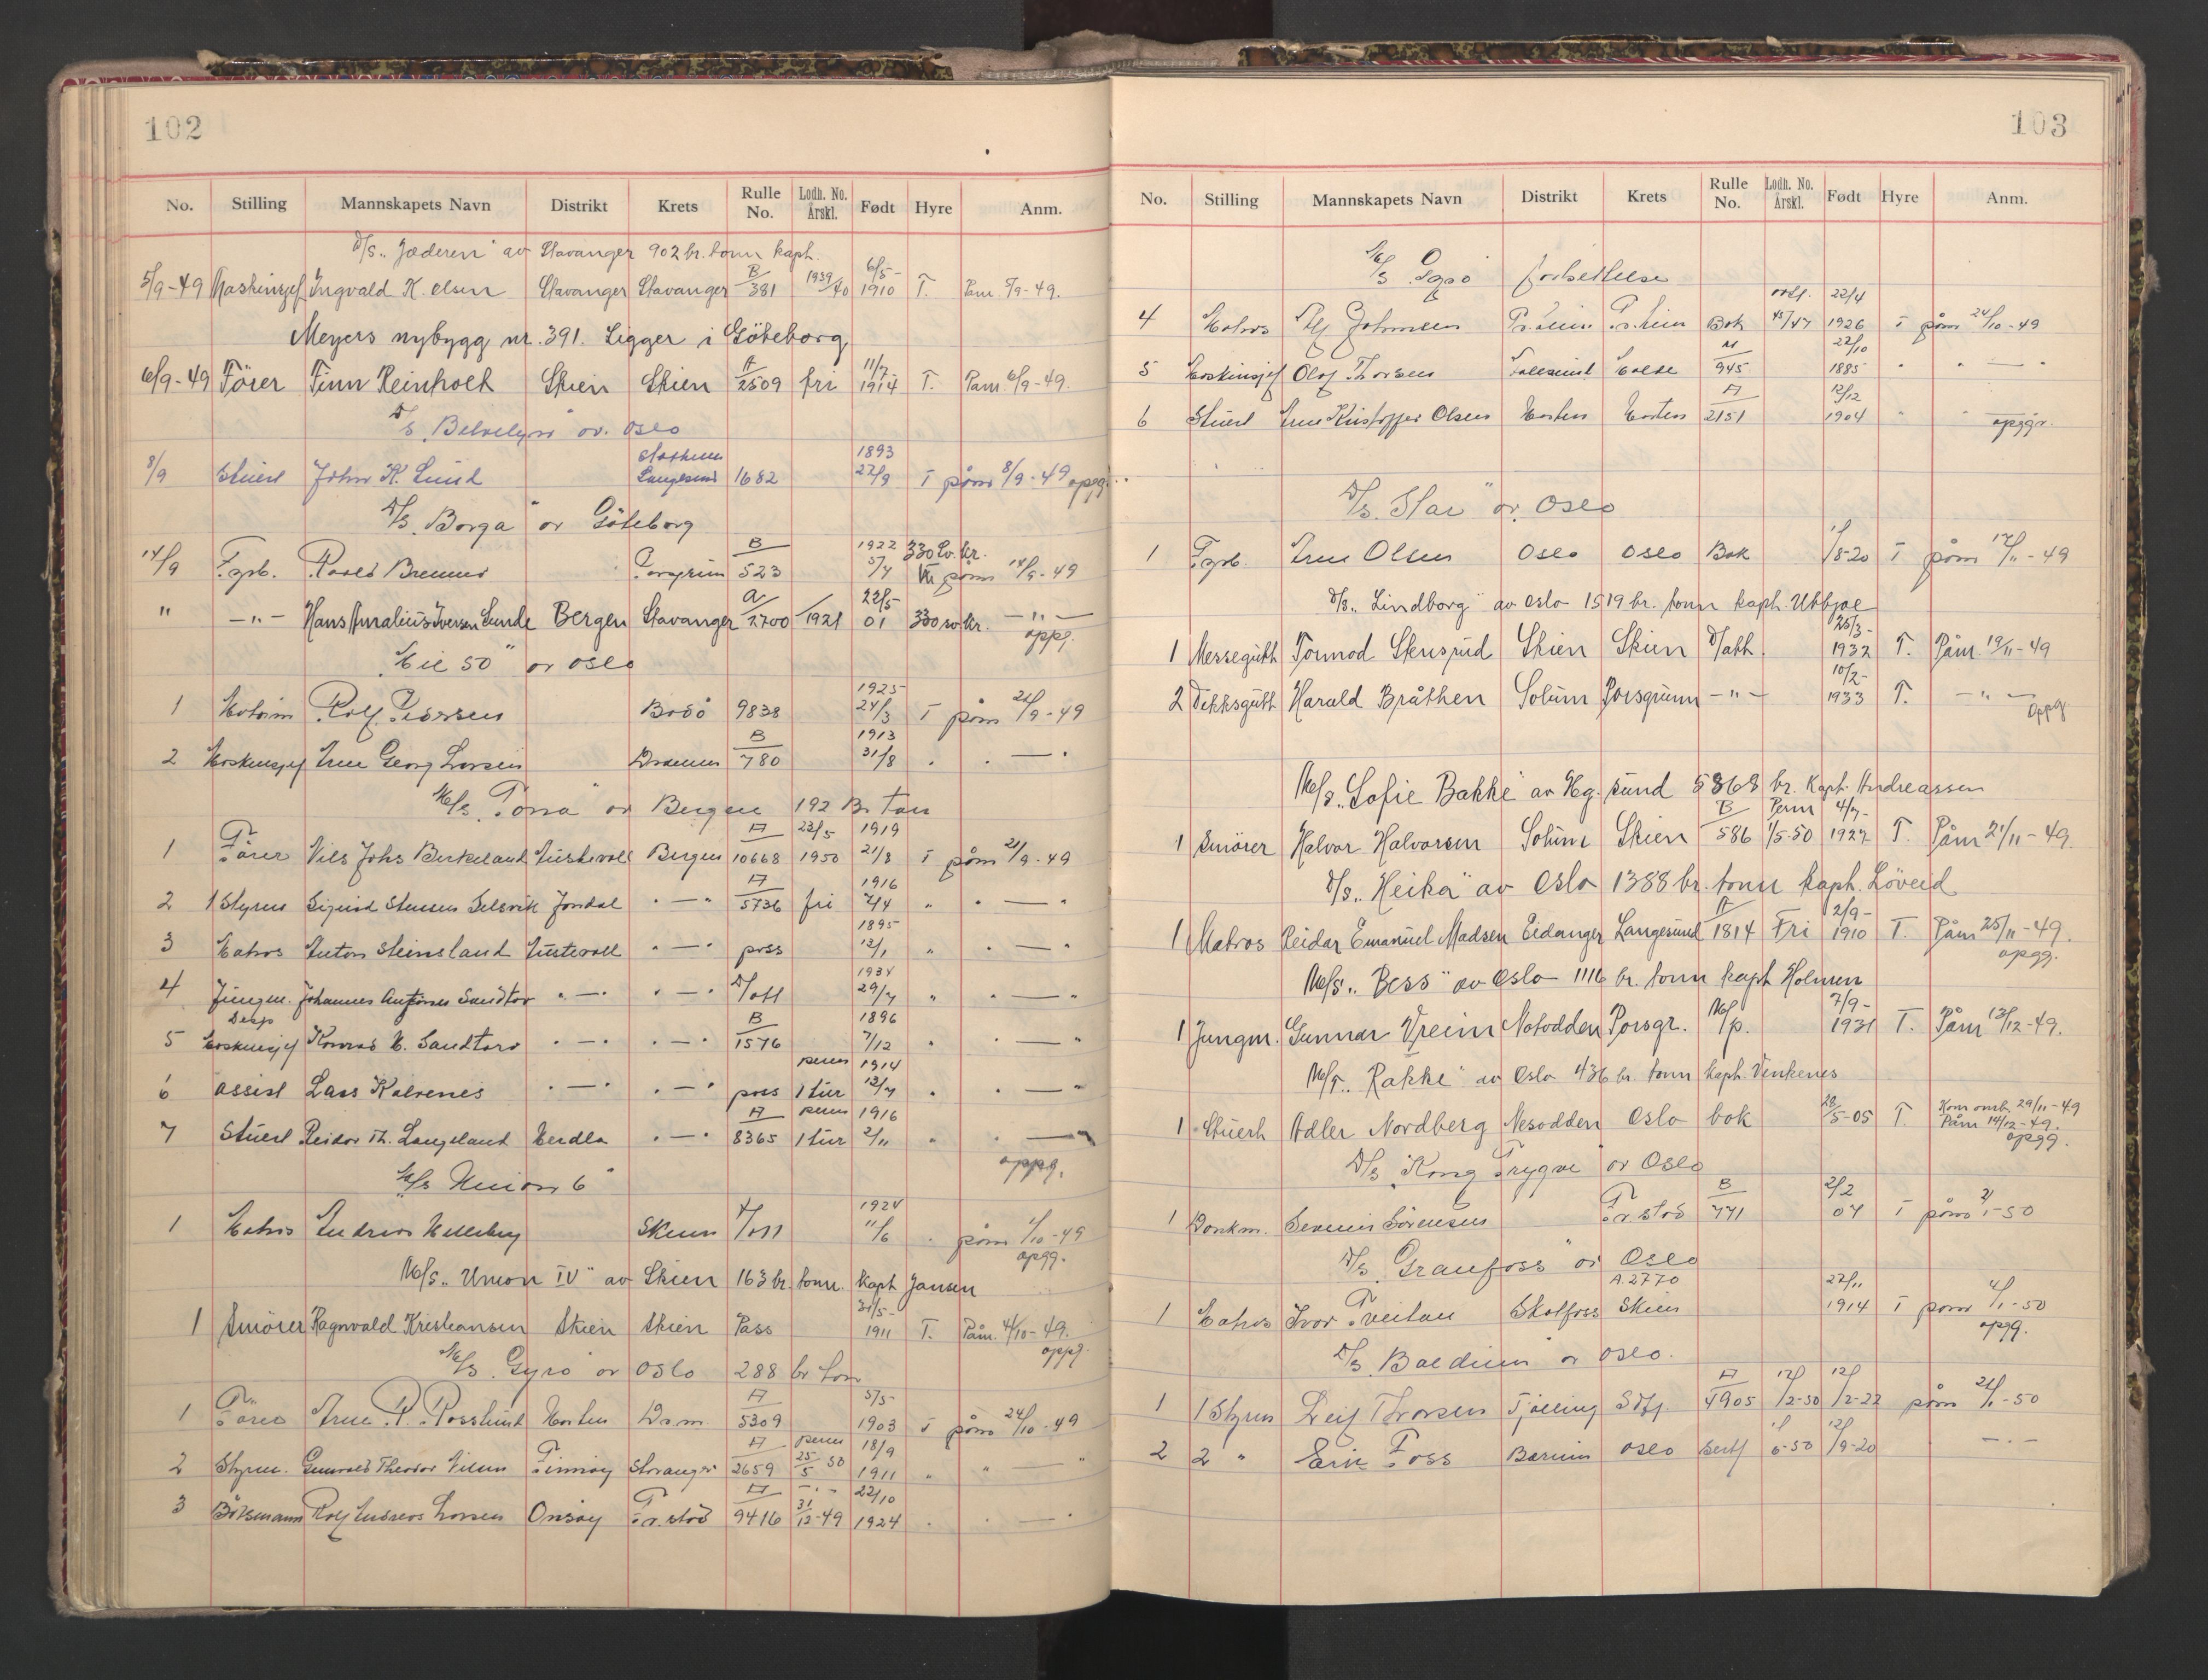 102
No. Stilling Mannskapets Navn Distrikt Krets Rulle No. Lodh. No. Årskl. Født Hyre Anm.
D/S. "Jæderen" av Stavanger 902 br. tonn kapt.
5/9-49 Maskinsjef Ingvald K. Olsen Stavanger Stavanger B/381 1939/40 6/5-1910 T. Påm. 5/9-49.
Meyers nybygg nr. 391. Ligger i Göteborg
6/9-49 Förer Finn Reinholt Skien Skien A/2509 fri 11/7-1914 T. Påm. 6/9-49.
D/S ov. Oslo
8/9 Stuert John K. Lund Langesund 1682 1893 22/9 T påm 8/9-49 opg.
D/S. "Borga" ov Göteborg
14/9 Fyrb. Roald Porsgrunn B/523 1922 5/7 330 sv. kr. påm 14/9-49
" -"- Hans Iversen Lunde Bergen Stavanger a/2700 1921 22/5-01 330 sv kr. -"-
oppg.
50" ov Oslo
1 Rolf Bodö 9838 1925 24/3 T påm 21/9-49
2 Maskinsjef Arne Georg Larsen Drammen B/780 1913 31/8 " " — "
M/S. ov Bergen 192 Br. Ton
1 Förer Nils Johs Birkeland Austevoll Bergen A/10668 22/5 1950 1919 21/8 T påm 21/9-49
2 1 Styrm Sigurd Jondal " — " A/5736 fri 1916 7/4 " " — "
3 Matros Anton Steinsland Austevoll " — " pass 1895 12/1 " " — "
4 Jungm. Johannes Sandtor " — " " — " D/att 1934 29/7 " " — "
5 Maskinsjef " — " " — " B/1576 1896 7/12 " " — "
6 assist Lars Kalvenes " — " " — " pass perm 1 tur 1914 12/7 " " — "
7 Stuert Reidar Th. Langeland Herdla " — " A/8365 perm 1 tur 1916 2/11 " " — "
oppg.
M/S Union 6"
1 Matros Andreas Skien 1924 11/6 påm 1/10-49
opgg.
M/S. "Union IV" av Skien 163 br. tonn. Kapt Jansen
1 Smörer Ragnvald Kristiansen Skien Skien Pass 31/5-1911 T. Påm. 4/10-49.
oppg.
M/S "Gyro" ov Oslo 288 br ton
1 Förer Arne R. Horten Dr.m. A/5309 5/5-1903 T påm 24/10-49
2 Styrm. Theodor Finnöy Stavanger A/2659 perm 25/5 50 18/9 1911 " " — "
3 Båtsmann Rolf Andreas Larsen Onsöy Fr.stad A/9416 31/12-49 22/10 1924 " " — "
103
No. Stilling Mannskapets Navn Distrikt Krets Rulle No. Lodh. No. Årskl. Født Hyre Anm.
M/S fortsettelse
4 Matros Johnsen Bok 45/47 22/4 1926 T påm 24/10-49
5 Maskinsjef Olaf Thorsen Molde M/945 22/10 1885 " " — "
6 Stuert Arne Kristoffer Olsen Horten Horten A/2151 12/12 1904 " "
opggr.
D/S. "Star" ov. Oslo
1 Fyrb. Arne Olsen Oslo Oslo Bok 1/8-20 T påm 12/11-49
D/S. "Lindborg" av Oslo 1519 br. tonn kapt.
1 Messegutt Tormod Skien Skien D/att. 25/3-1932 T. Påm. 19/11-49
2 Dekksgutt Harald Bråthen Solum Porsgrunn -"- 10/2-1933 T. -"-
oppg.
M/S. "Sofie Bakke" av Hg.sund 5368 br. Kapt. Andreassen
1 Smörer Halvor Halvorsen Solum Skien B/586 Perm 1/5-50 4/7-1927 T. Påm 21/11-49.
D/S. "Heika" av Oslo 1388 br. tonn kapt. Löveid
1 Matros Reidar Emanuel Madsen Eidanger Langesund A/1814 Fri 2/9-1910 T. Påm 25/11-49.
opgg.
M/S. "Bess" av Oslo 1116 br. tonn kapt Holmen
1 Jungm. Gunnar Vreim Notodden Porsgr. M/p. 7/9-1931 T. Påm 13/12-49.
M/S. "Rakke" av Oslo 436 br. tonn Kapt. Venkenes
1 Stuert Adler Nordberg Nesodden Oslo bok 28/5-05 T. Kom omb. 29/11-49
Påm 14/12-49.
opgg.
D/S "Kong Trygve" ov Oslo
1 Donkm. Sörensen Fr.stad B/771 2/2 07 T påm 2/1-50
D/S. "Granfoss" ov Oslo
1 Matros Ivar Tveitan Skotfoss A.2770 Skien 22/11 1914 T påm 4/1-50
opgg.
D/S. ov Oslo.
1 1 Styrm Leif Thorsen Tjölling A/4905 12/12-50 12/12-22 påm 21/1-50
2 2 " Erik Foss Bærum Oslo sertf 1/6-50 12/9-20 — " —